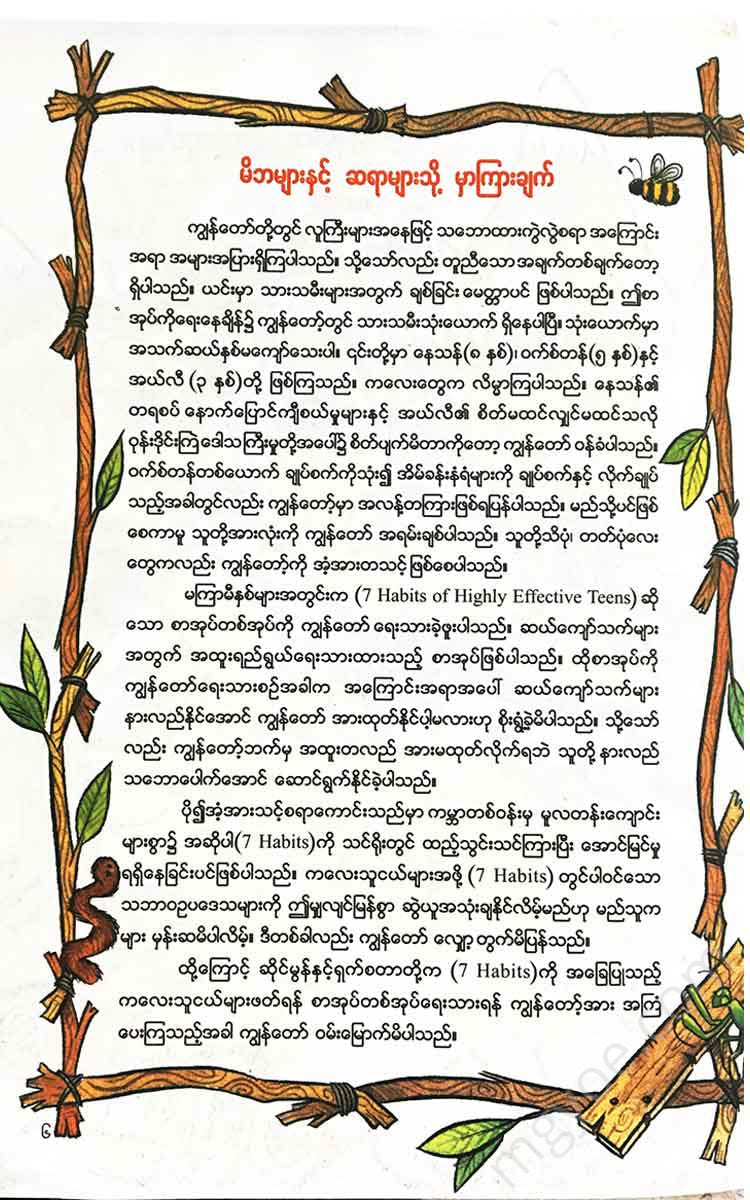 မိဘများနှင့် ဆရာများသို့ မှာကြားချက်
ကျွန်တော်တို့တွင် လူကြီးများအနေဖြင့် သဘောထားကွဲလွဲစရာ အကြောင်း
အရာ အများအပြားရှိကြပါသည်။ သို့သော်လည်း တူညီသော အချက်တစ်ချက်တော့
ရှိပါသည်။ ယင်းမှာ သားသမီးများအတွက် ချစ်ခြင်း မေတ္တာပင် ဖြစ်ပါသည်။ ဤစာ
အုပ်ကိုရေးနေချိန်၌ ကျွန်တော့်တွင် သားသမီးသုံးယောက် ရှိနေပါပြီ။ သုံးယောက်မှာ
အသက်ဆယ်နှစ်မကျော်သေးပါ။ ၎င်းတို့မှာ နေသန်(၈ နှစ်)၊ ဝက်စ်တန်(၅ နှစ်)နှင့်
အယ်လီ (၃ နှစ်)တို့ ဖြစ်ကြသည်။ ကလေးတွေက လိမ္မာကြပါသည်။ နေသန်၏
တရစပ် နောက်ပြောင်ကျီစယ်မှုများနှင့် အယ်လီ၏ စိတ်မထင်လျှင်မထင်သလို
ဝုန်းဒိုင်းကြဲဒေါသကြီးမှုတို့အပေါ်၌ စိတ်ပျက်မိတာကိုတော့ ကျွန်တော် ဝန်ခံပါသည်။
ဝက်စ်တန်တစ်ယောက် ချုပ်စက်ကိုသုံး၍ အိမ်ခန်းနံရံများကို ချုပ်စက်နှင့် လိုက်ချုပ်
သည့်အခါတွင်လည်း ကျွန်တော့်မှာ အလန့်တကြားဖြစ်ရပြန်ပါသည်။ မည်သို့ပင်ဖြစ်
စေကာမူ သူတို့အားလုံးကို ကျွန်တော် အရမ်းချစ်ပါသည်။ သူတို့သိပုံ၊ တတ်ပုံလေး
တွေကလည်း ကျွန်တော့်ကို အံ့အားတသင့်ဖြစ်စေပါသည်။
မကြာမီနှစ်များအတွင်းက (7 Habits of Highly Effective Teens) ဆို
သော စာအုပ်တစ်အုပ်ကို ကျွန်တော် ရေးသားခဲ့ဖူးပါသည်။ ဆယ်ကျော်သက်များ
အတွက် အထူးရည်ရွယ်ရေးသားထားသည့် စာအုပ်ဖြစ်ပါသည်။ ထိုစာအုပ်ကို
ကျွန်တော်ရေးသားစဉ်အခါက အကြောင်းအရာအပေါ် ဆယ်ကျော်သက်များ
နားလည်နိုင်အောင် ကျွန်တော် အားထုတ်နိုင်ပါ့မလားဟု စိုးရွံ့ခဲ့မိပါသည်။ သို့သော်
လည်း ကျွန်တော့်ဘက်မှ အထူးတလည် အားမထုတ်လိုက်ရဘဲ သူတို့ နားလည်
သဘောပေါက်အောင် ဆောင်ရွက်နိုင်ခဲ့ပါသည်။
ပို၍အံ့အားသင့်စရာကောင်းသည်မှာ ကမ္ဘာတစ်ဝန်းမှ မူလတန်းကျောင်း
များစွာ၌ အဆိုပါ(7 Habits)ကို သင်ရိုးတွင် ထည့်သွင်းသင်ကြားပြီး အောင်မြင်မှု
ရရှိနေခြင်းပင်ဖြစ်ပါသည်။ ကလေးသူငယ်များအဖို့ (7 Habits) တွင်ပါဝင်သော
သဘာဝဥပဒေသများကို ဤမျှလျင်မြန်စွာ ဆွဲယူအသုံးချနိုင်လိမ့်မည်ဟု မည်သူက
များ မှန်းဆမိပါလိမ့်။ ဒီတစ်ခါလည်း ကျွန်တော် လျှော့တွက်မိပြန်သည်။
ထို့ကြောင့် ဆိုင်မွန်နှင့်ရှက်စတာတို့က (7 Habits)ကို အခြေပြုသည့်
ကလေးသူငယ်များဖတ်ရန် စာအုပ်တစ်အုပ်ရေးသားရန် ကျွန်တော့်အား အကြံ
ပေးကြသည့်အခါ ကျွန်တော် ဝမ်းမြောက်မိပါသည်။
၆
mgjoe.com